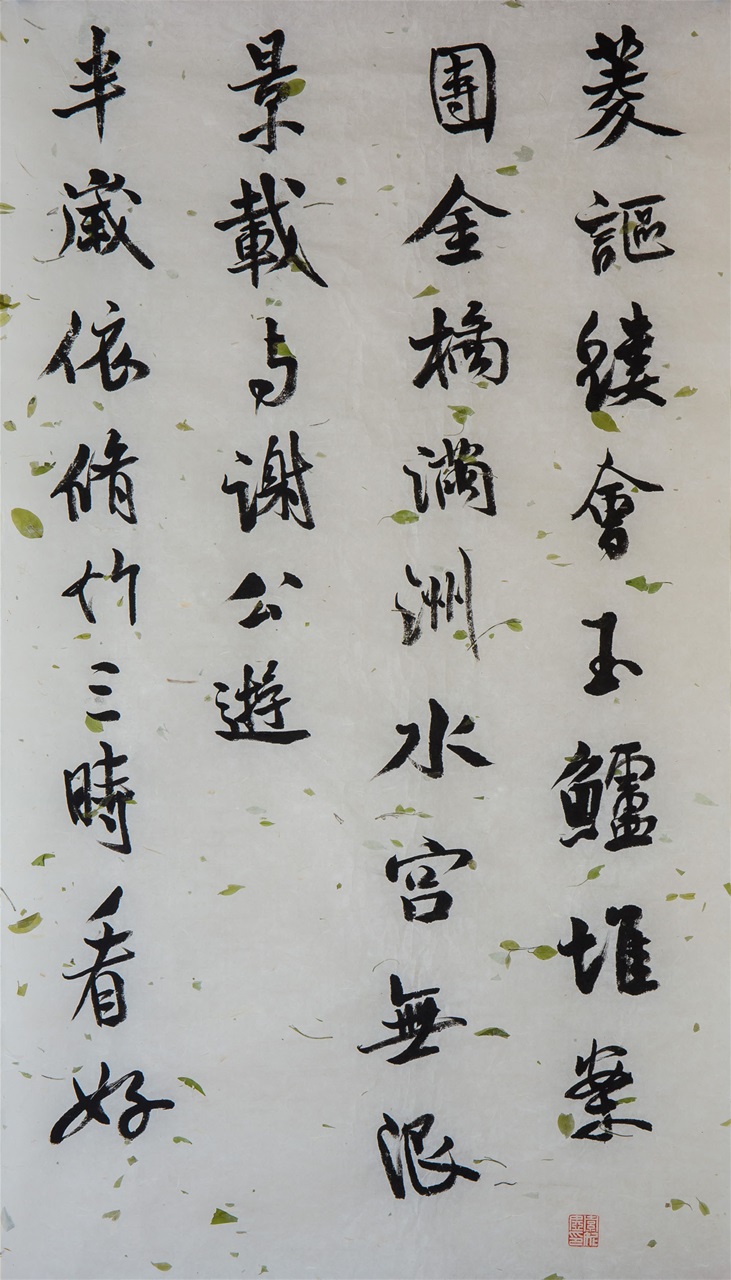 菱謳縷會玉鱸堆案
團金橘滿洲水宮無限
景載与謝公遊
半歲依脩竹三時看好